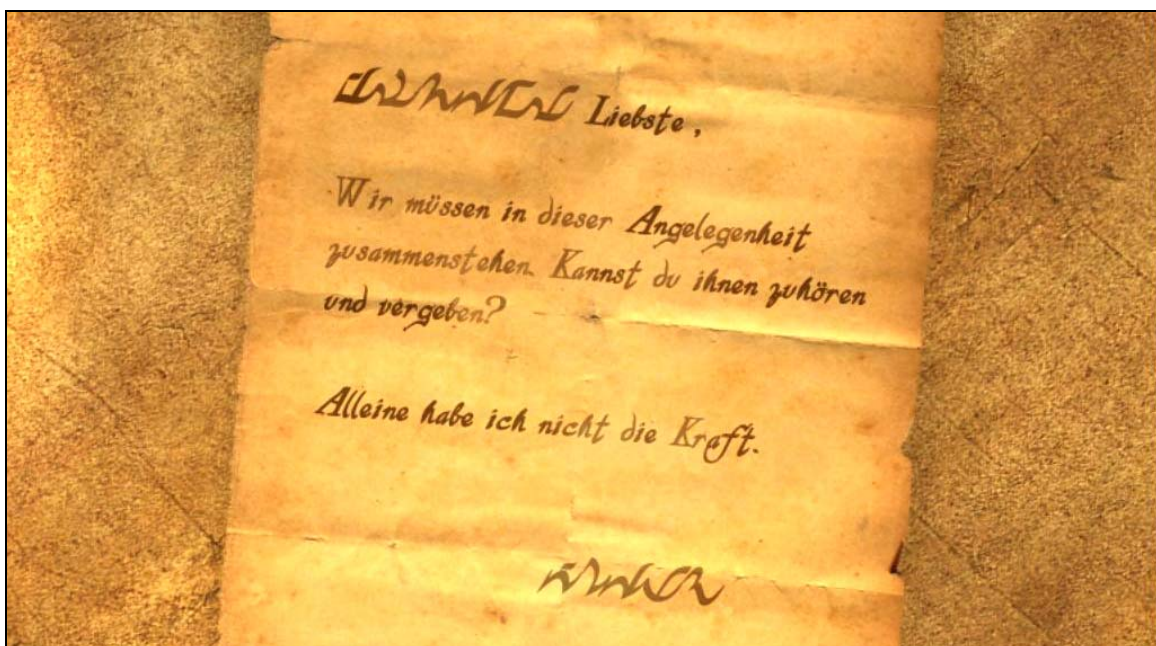 Liebste,
Wir müssen in dieser Angelegenheit
zusammenstehen. Kannst du ihnen zuhören
und vergeben?
Alleine habe ich nicht die Kraft.